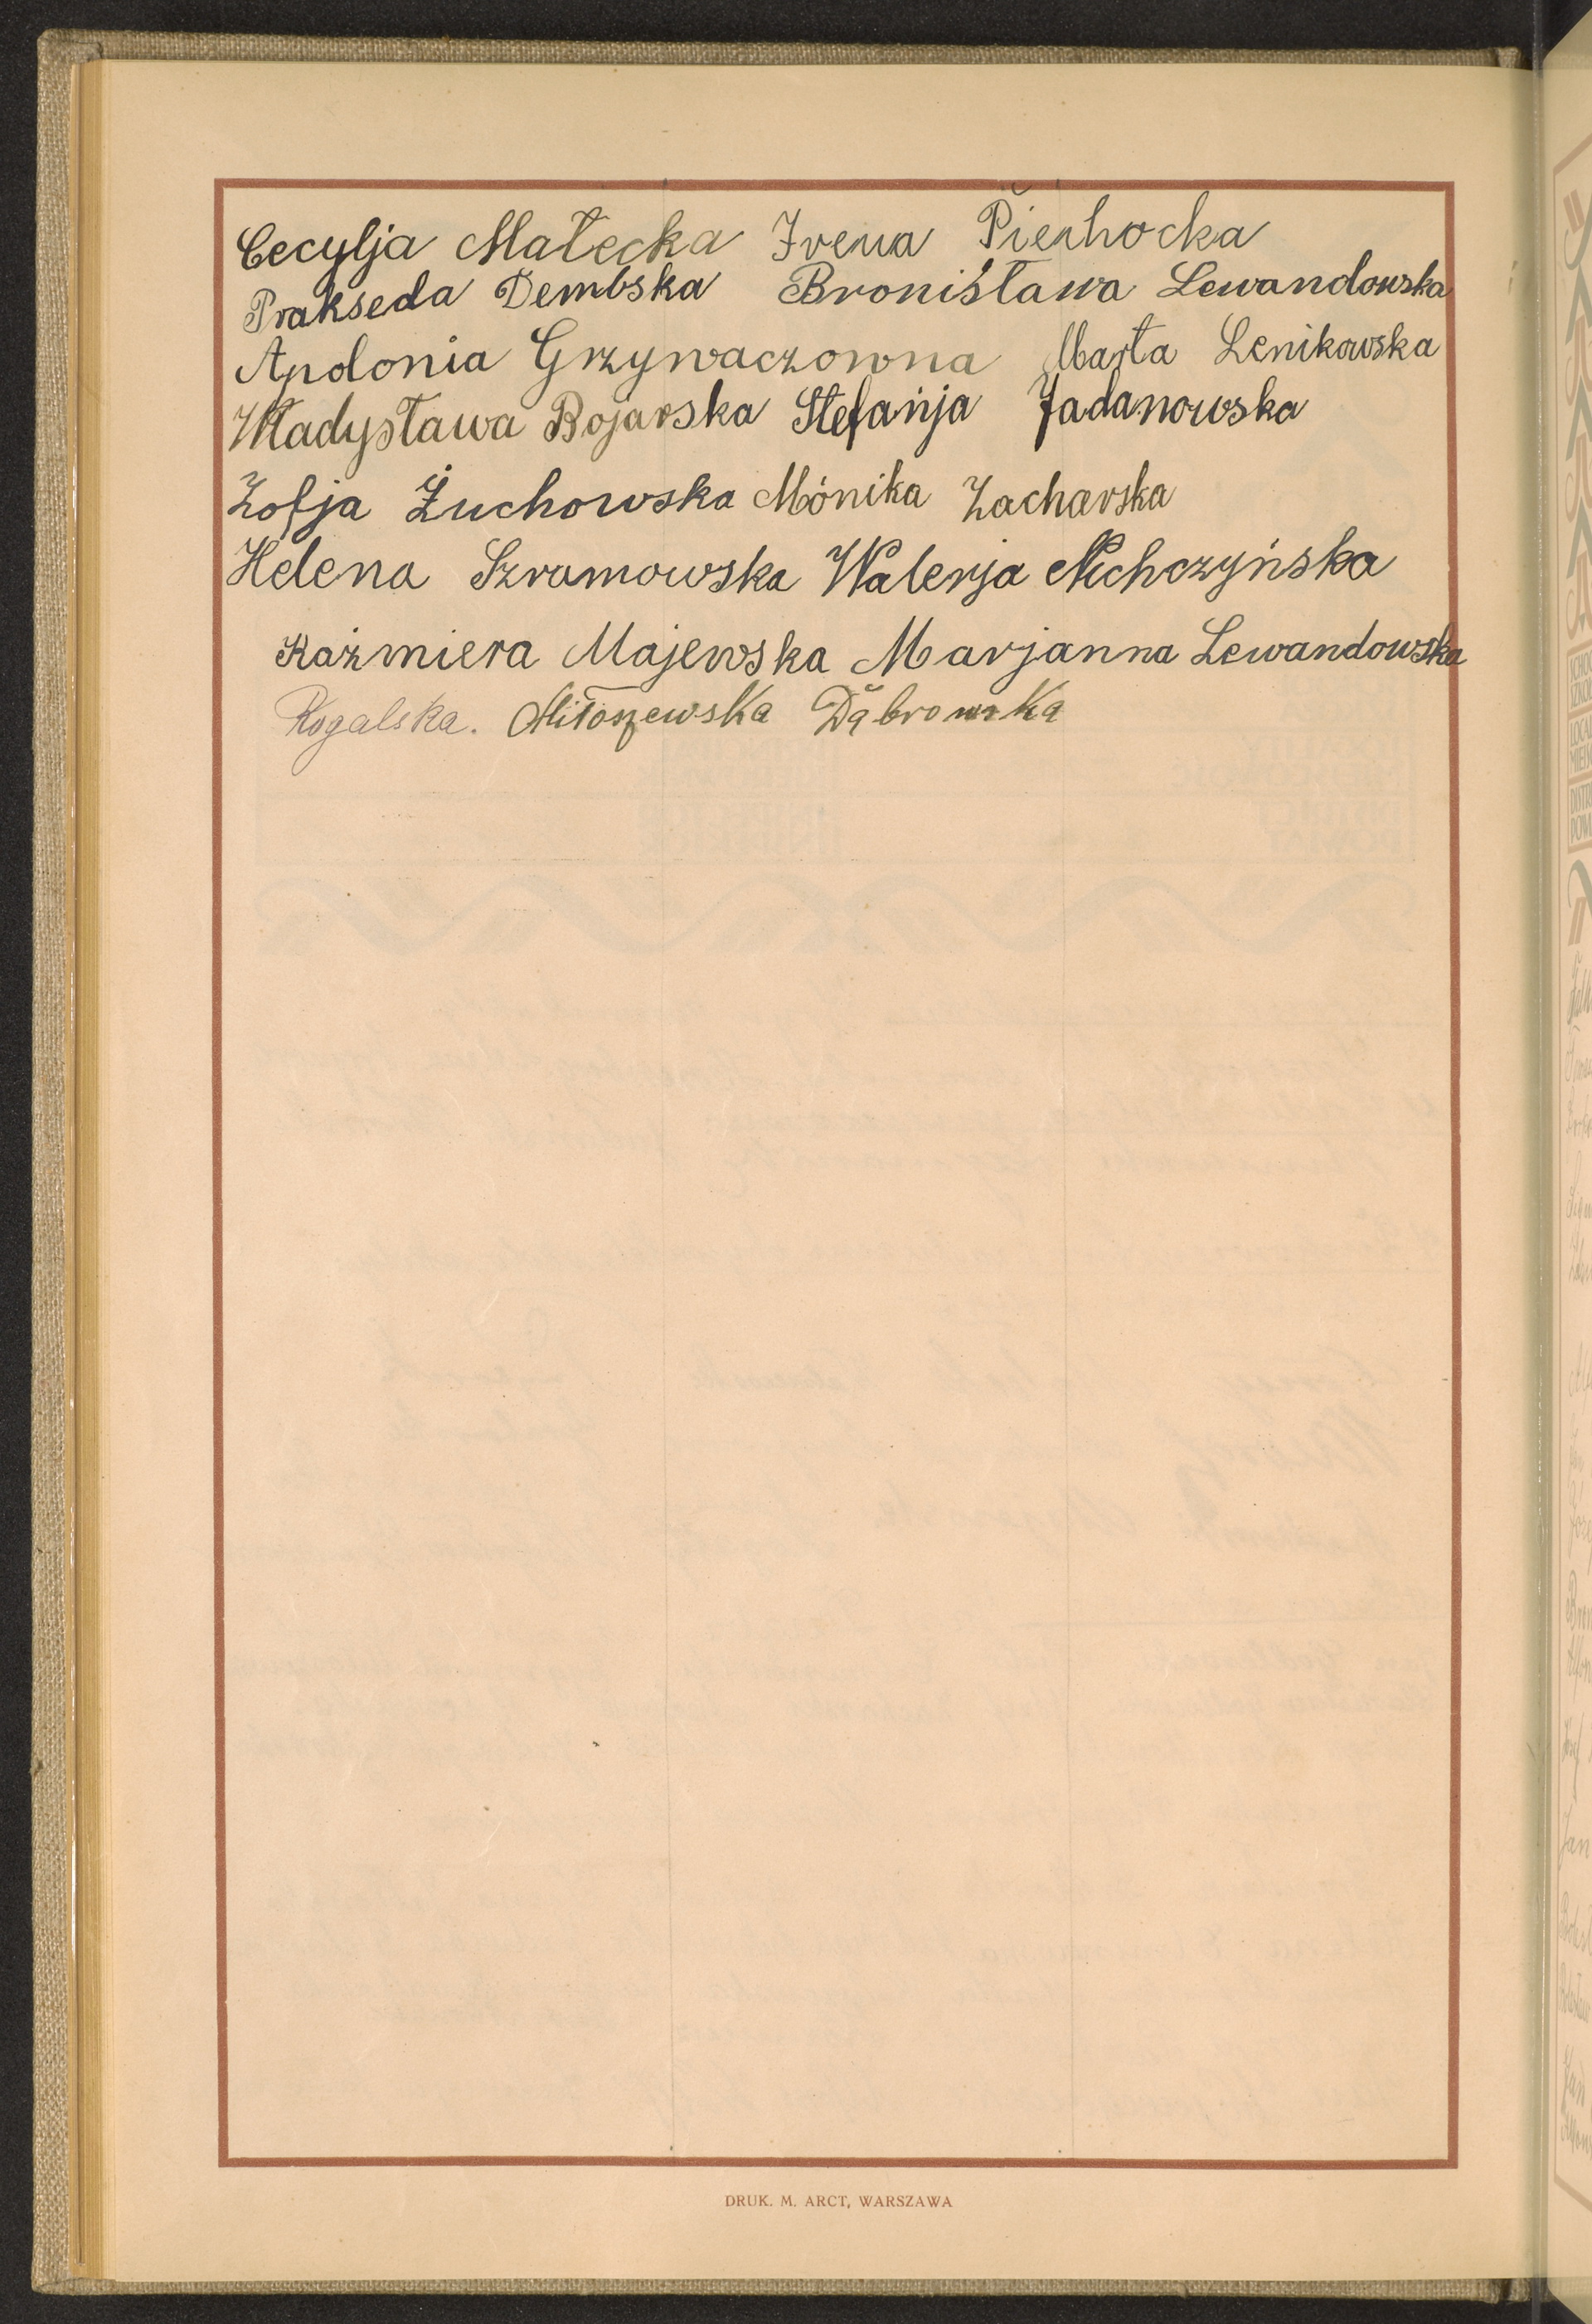 Cecylja Małecka Irena Pierhocka
Prakseda Dembska Bronisława Lewandowska
Apolonia Grzywaczowna Marta Lenikowska
Władysława Bojarska Stefanja Jadanowska
Zofja Żuchowska Mónika Zacharska
Helena Szramowska Walerja Nichczyńska
Kaźmiera Majewska Marjanna Lewandowska
Rogalska. Miłoszewska Dąbrowska
DRUK. M. ARCT, WARSZAWA